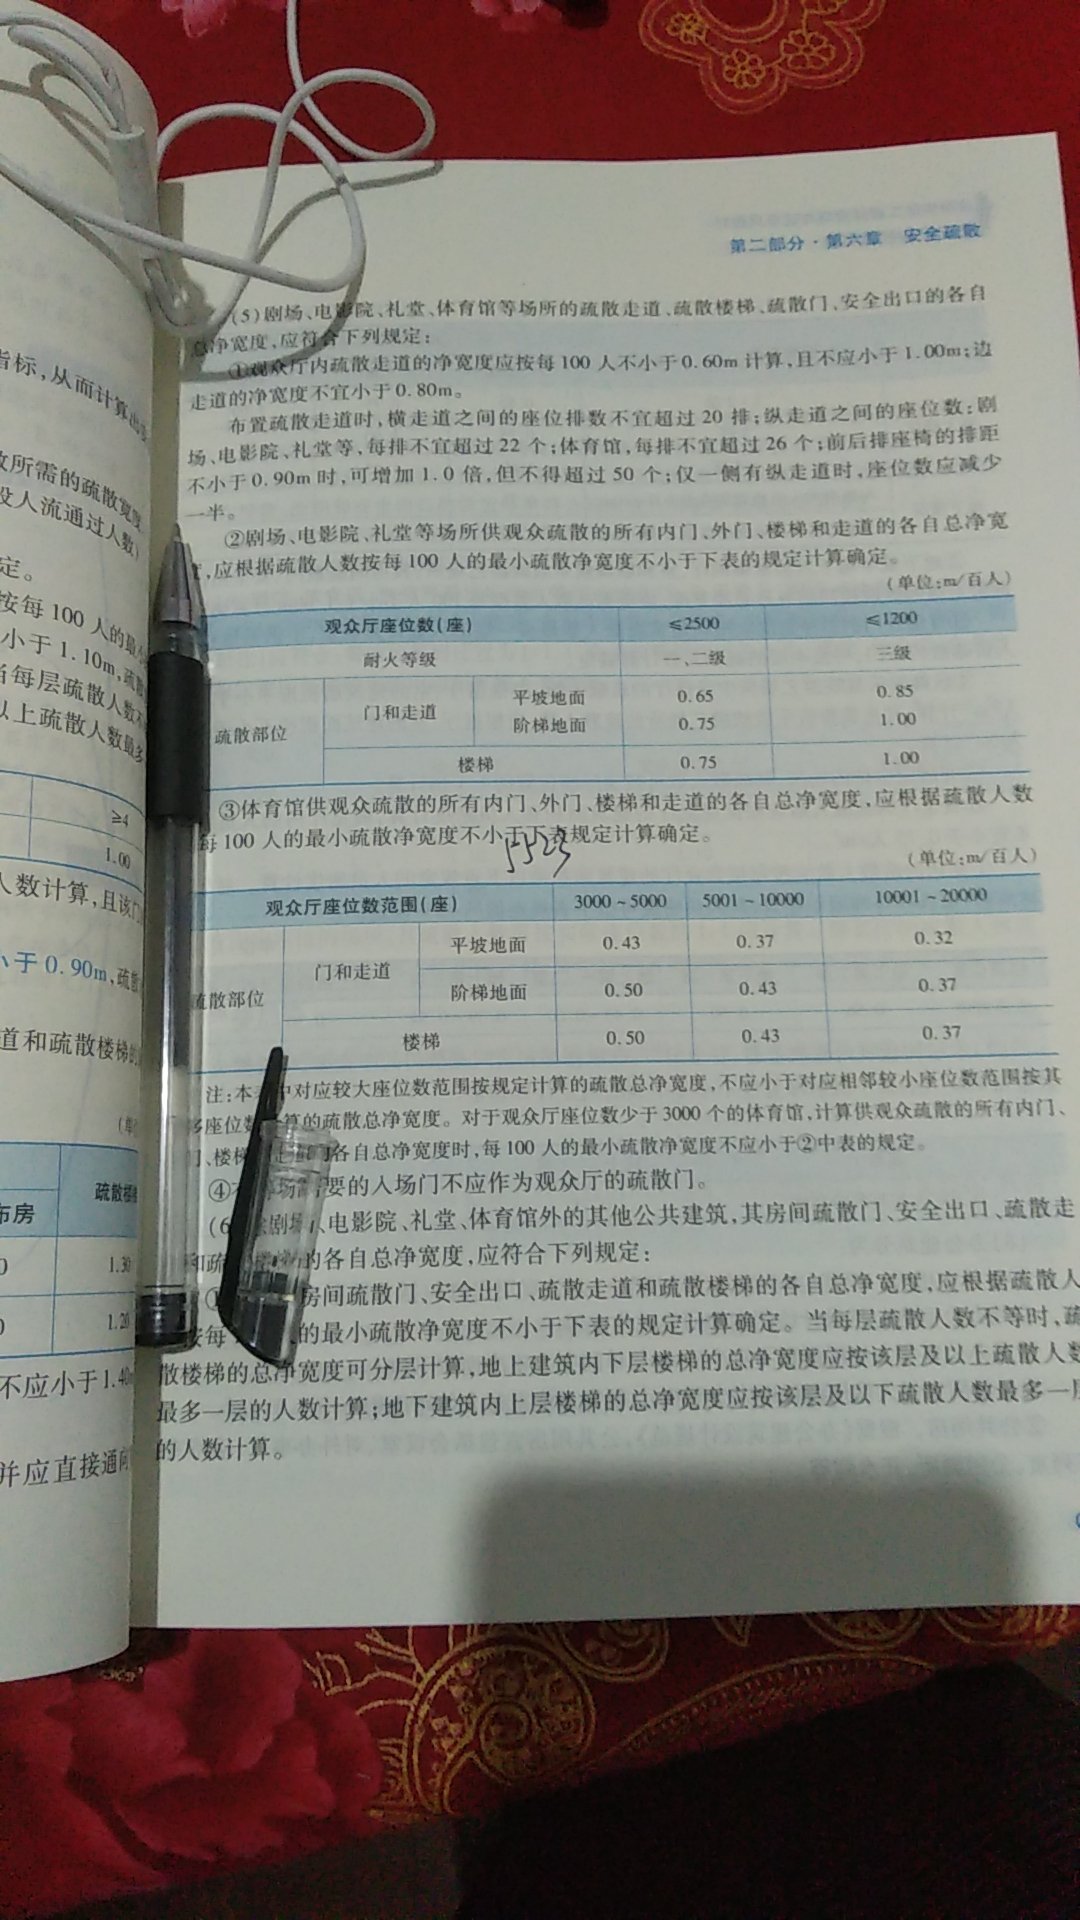 第二部分·第六章 安全疏散
(5)剧场、电影院、礼堂、体育馆等场所的疏散走道、疏散楼梯、疏散门、安全出口的各自
总净宽度,应符合下列规定:
①观众厅内疏散走道的净宽度应按每100人不小于0.60m计算,且不应小于1.00m;边
走道的净宽度不宜小于0.80m。
布置疏散走道时,横走道之间的座位排数不宜超过20排;纵走道之间的座位数:剧
场、电影院、礼堂等,每排不宜超过22个;体育馆,每排不宜超过26个;前后排座椅的排距
不小于0.90m时,可增加1.0倍,但不得超过50个;仅一侧有纵走道时,座位数应减少
一半。
②剧场、电影院、礼堂等场所供观众疏散的所有内门、外门、楼梯和走道的各自总净宽
,应根据疏散人数按每100人的最小疏散净宽度不小于下表的规定计算确定。
(单位:m/百人)
观众厅座位数(座) ≤2500 ≤1200
耐火等级 一、二级 三级
疏散部位 门和走道 平坡地面 0.65 0.85
阶梯地面 0.75 1.00
楼梯 0.75 1.00
③体育馆供观众疏散的所有内门、外门、楼梯和走道的各自总净宽度,应根据疏散人数
每100人的最小疏散净宽度不小于下表规定计算确定。
(单位:m/百人)
观众厅座位数范围(座) 3000~5000 5001~10000 10001~20000
疏散部位 门和走道 平坡地面 0.43 0.37 0.32
阶梯地面 0.50 0.43 0.37
楼梯 0.50 0.43 0.37
注:本表中对应较大座位数范围按规定计算的疏散总净宽度,不应小于对应相邻较小座位数范围按其
多座位数计算的疏散总净宽度。对于观众厅座位数少于3000个的体育馆,计算供观众疏散的所有内门、
、楼梯 各自总净宽度时,每100人的最小疏散净宽度不应小于②中表的规定。
④ 场需要的入场门不应作为观众厅的疏散门。
(6 剧场、电影院、礼堂、体育馆外的其他公共建筑,其房间疏散门、安全出口、疏散走
和疏 的各自总净宽度,应符合下列规定:
① 房间疏散门、安全出口、疏散走道和疏散楼梯的各自总净宽度,应根据疏散人
按每 的最小疏散净宽度不小于下表的规定计算确定。当每层疏散人数不等时,疏
散楼梯的总净宽度可分层计算,地上建筑内下层楼梯的总净宽度应按该层及以上疏散人数
最多一层的人数计算;地下建筑内上层楼梯的总净宽度应按该层及以下疏散人数最多一层
的人数计算。
指标,从而计算出
数所需的疏散宽度
股人流通过人数)
定。
按每100人的最
小于1.10m,疏散
当每层疏散人数不
以上疏散人数最多
≥4
1.00
人数计算,且该门
小于0.90m,疏散
道和疏散楼梯的
(单
疏散楼梯
布房
1.30
1.20
不应小于1.40
并应直接通向